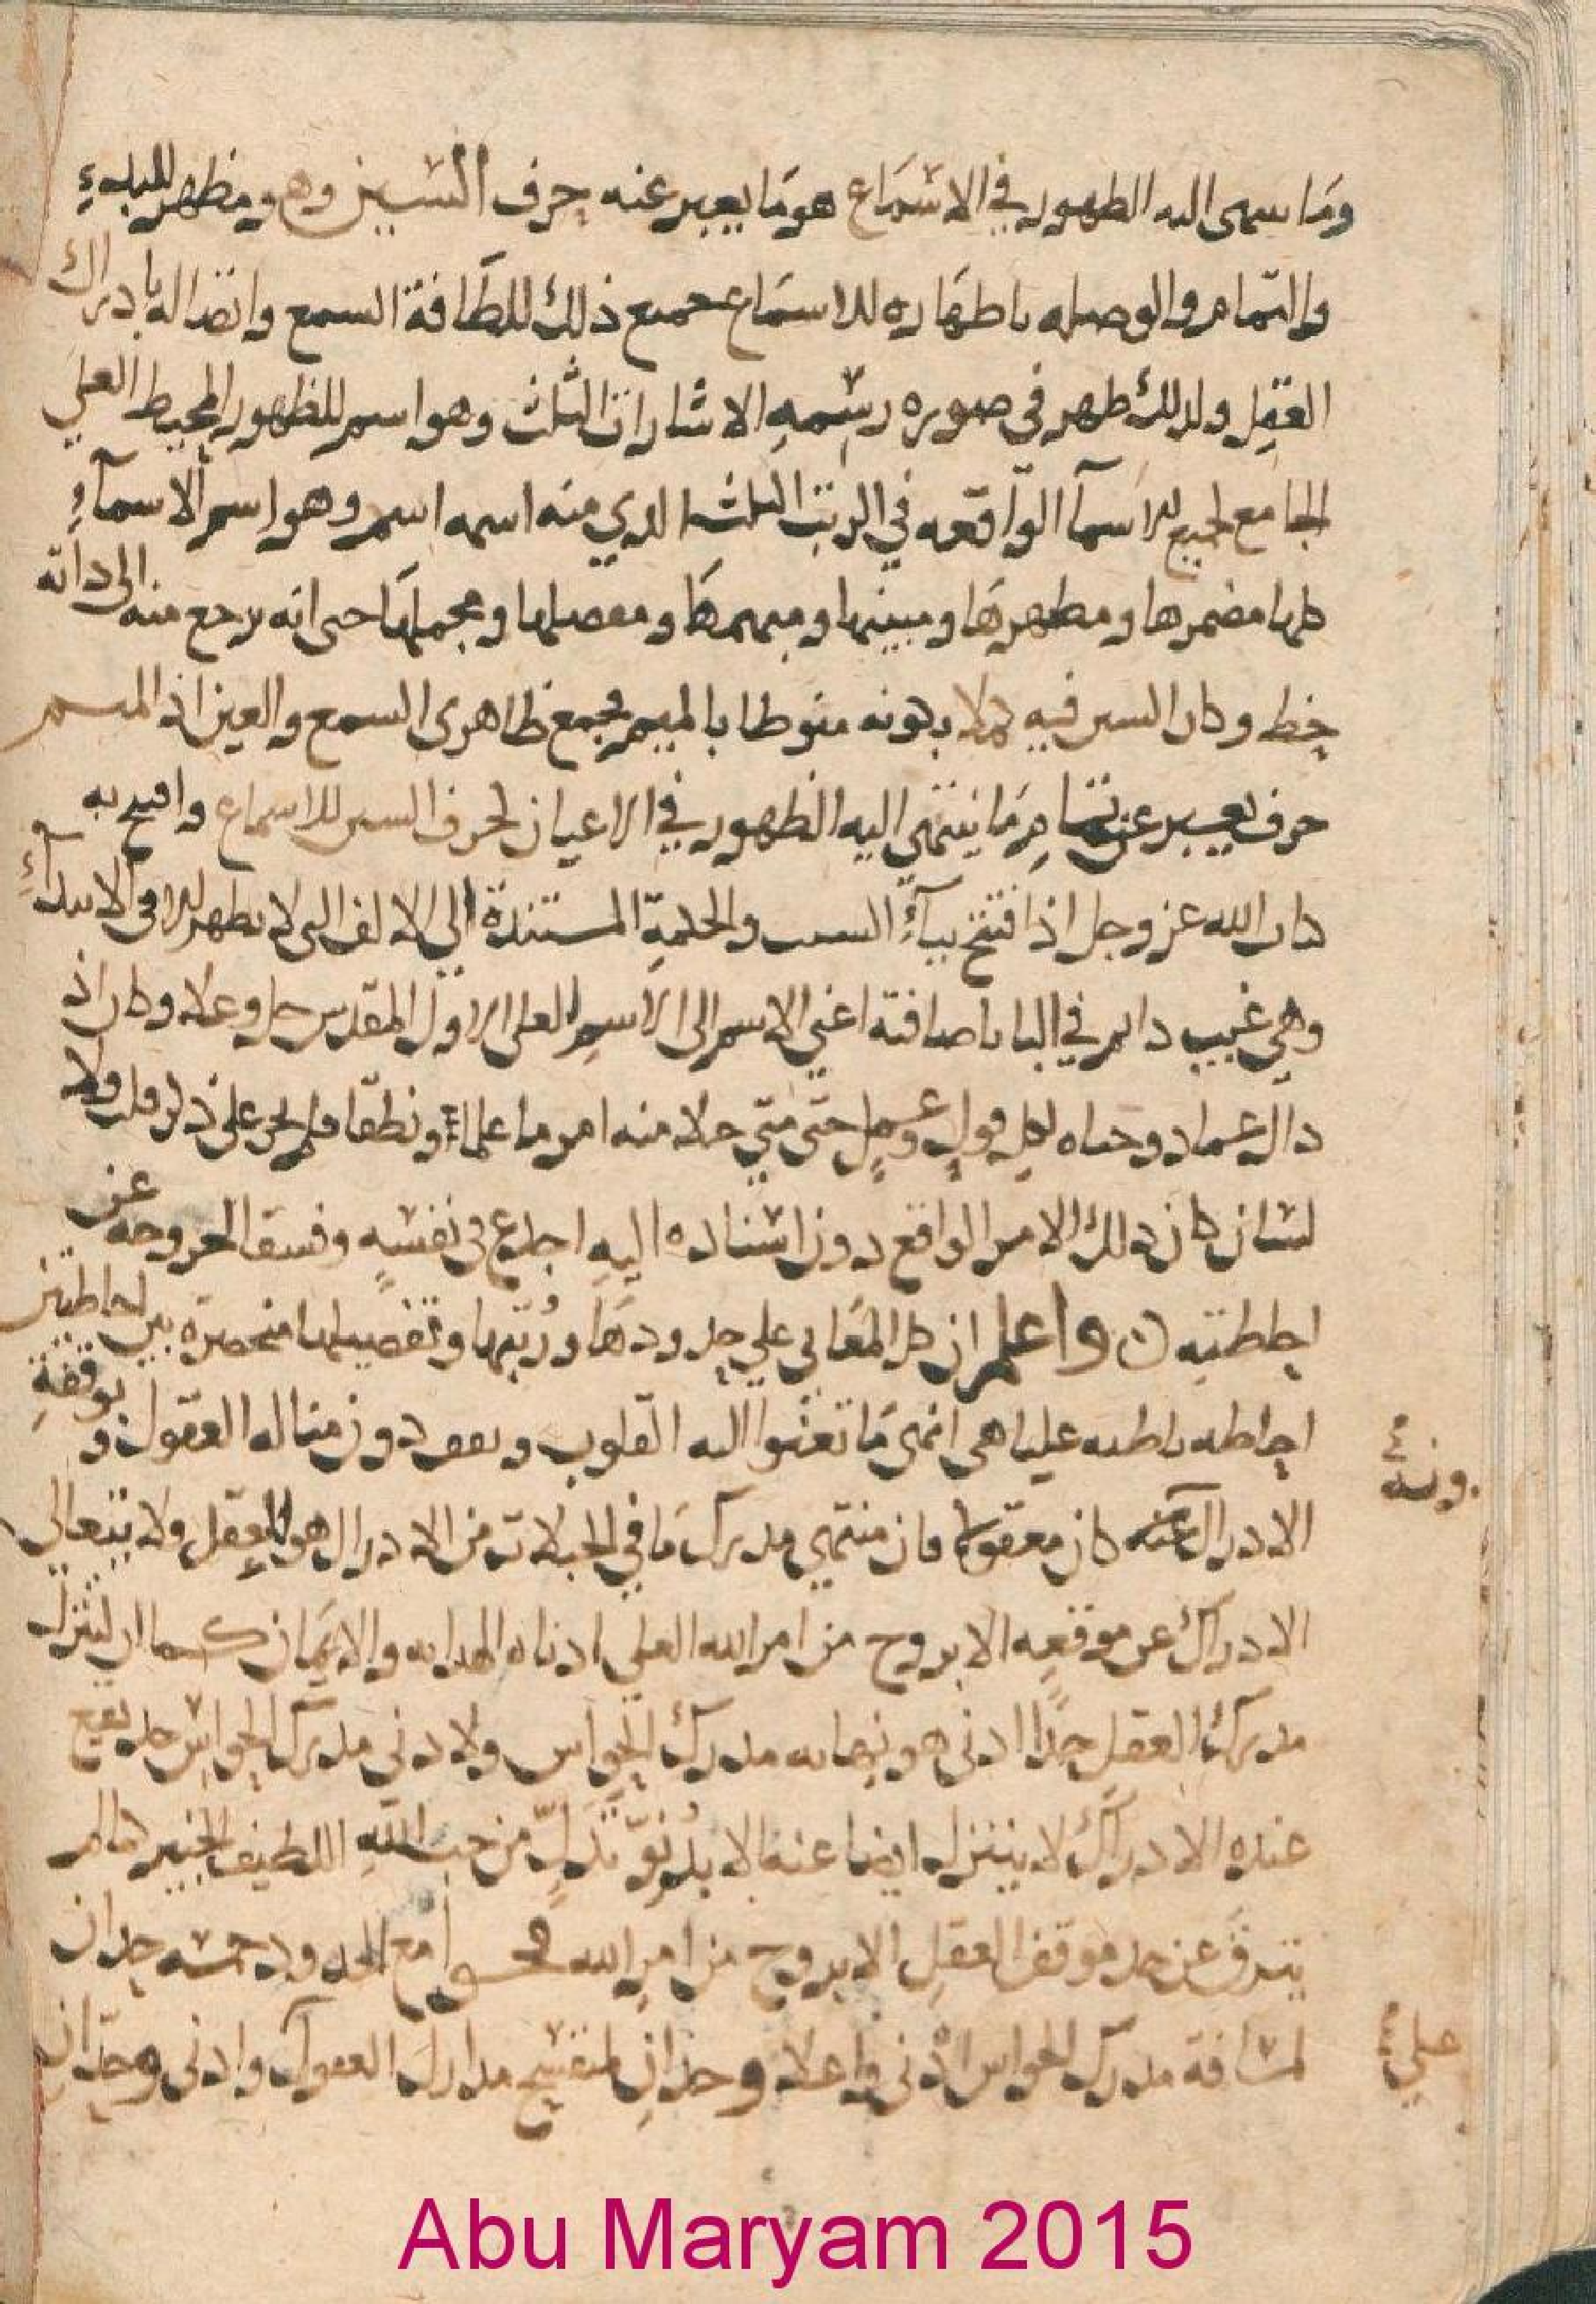 وما ينتهي اليه الظهور في الاسماع هو ما يعبر عنه حرف السين وهو مظهر للبدء
والتمام والوصله باظهاره للاسماع جميع ذلك للطافة السمع واتصاله بادراك
العقل ولذلك ظهر في صوره رسمه الاشارات الثلث وهو اسم للظهور المحيط العلي
الجامع لجميع الاسمآ الواقعه في الرتب الثلث الذي منه اسمه اسم وهو اسم الاسمآ
كلها مضمرها ومظهرها ومبينها ومبهمها ومفصلها ومجملها حتى انه يرجع منه الى ذاته
بخط وكان السين فيه منوطا بالميم مجمع ظاهري السمع والعين اذ الميم
حرف يعبر عن تمام ما ينتهي اليه الظهور في الاعيان لحرف السين للاسماع وافتتح به
كتاب الله عز وجل اذ افتتح ببآء السبب والحكمة المستندة الي الالف التي لا يظهر في الابتدآء
وهي غيب دايم في البا باضافته اعني الاسم الى الاسم العلي الاول المقدس جل وعلا وكان اذ
ذاك عماد وحياه لكل قول وعمل حتى متي خلا منه امر ما علما ونطقا فلم يجر على ذكر قلب ولا
لسان كان ذلك الامر الواقع دون اسناده اليه اجدع في نفسه وفسقا لخروجه عن
احاطته ن واعلم ان كل المعاني علي حدودها ورتبها وتفصيلها منحصرة بين احاطتين
احاطه باطنه عليا هي انهى ما تعنوا اليه القلوب ويقف دون مناله العقول و بوقفة
الادراك عنه كان معقولا فان منتهي مدرك ما في الجبلات من الادراك هو العقل ولا يتعالي
الادراك عن موقفه الا بروح من امر الله العلي ادناه الهدايه والايمان كما ان لتنزل
مدرك العقل حدا ادنى هو نهايه مدرك الحواس ولادني مدرك الحواس حد يقع
عنده الادراك لا يتنزل ايضا عنه الا بدنو تدل من حب الله اللطيف الخبير كما لم
يترق عن حد موقف العقل الا بروح من امر الله فجوامع الحدود خمسه حدان
لمسافة مدرك الحواس ادنى واعلا وحدان لمنفسح مدارك العقول وادنى وحد ان
علي
Abu Maryam 2015